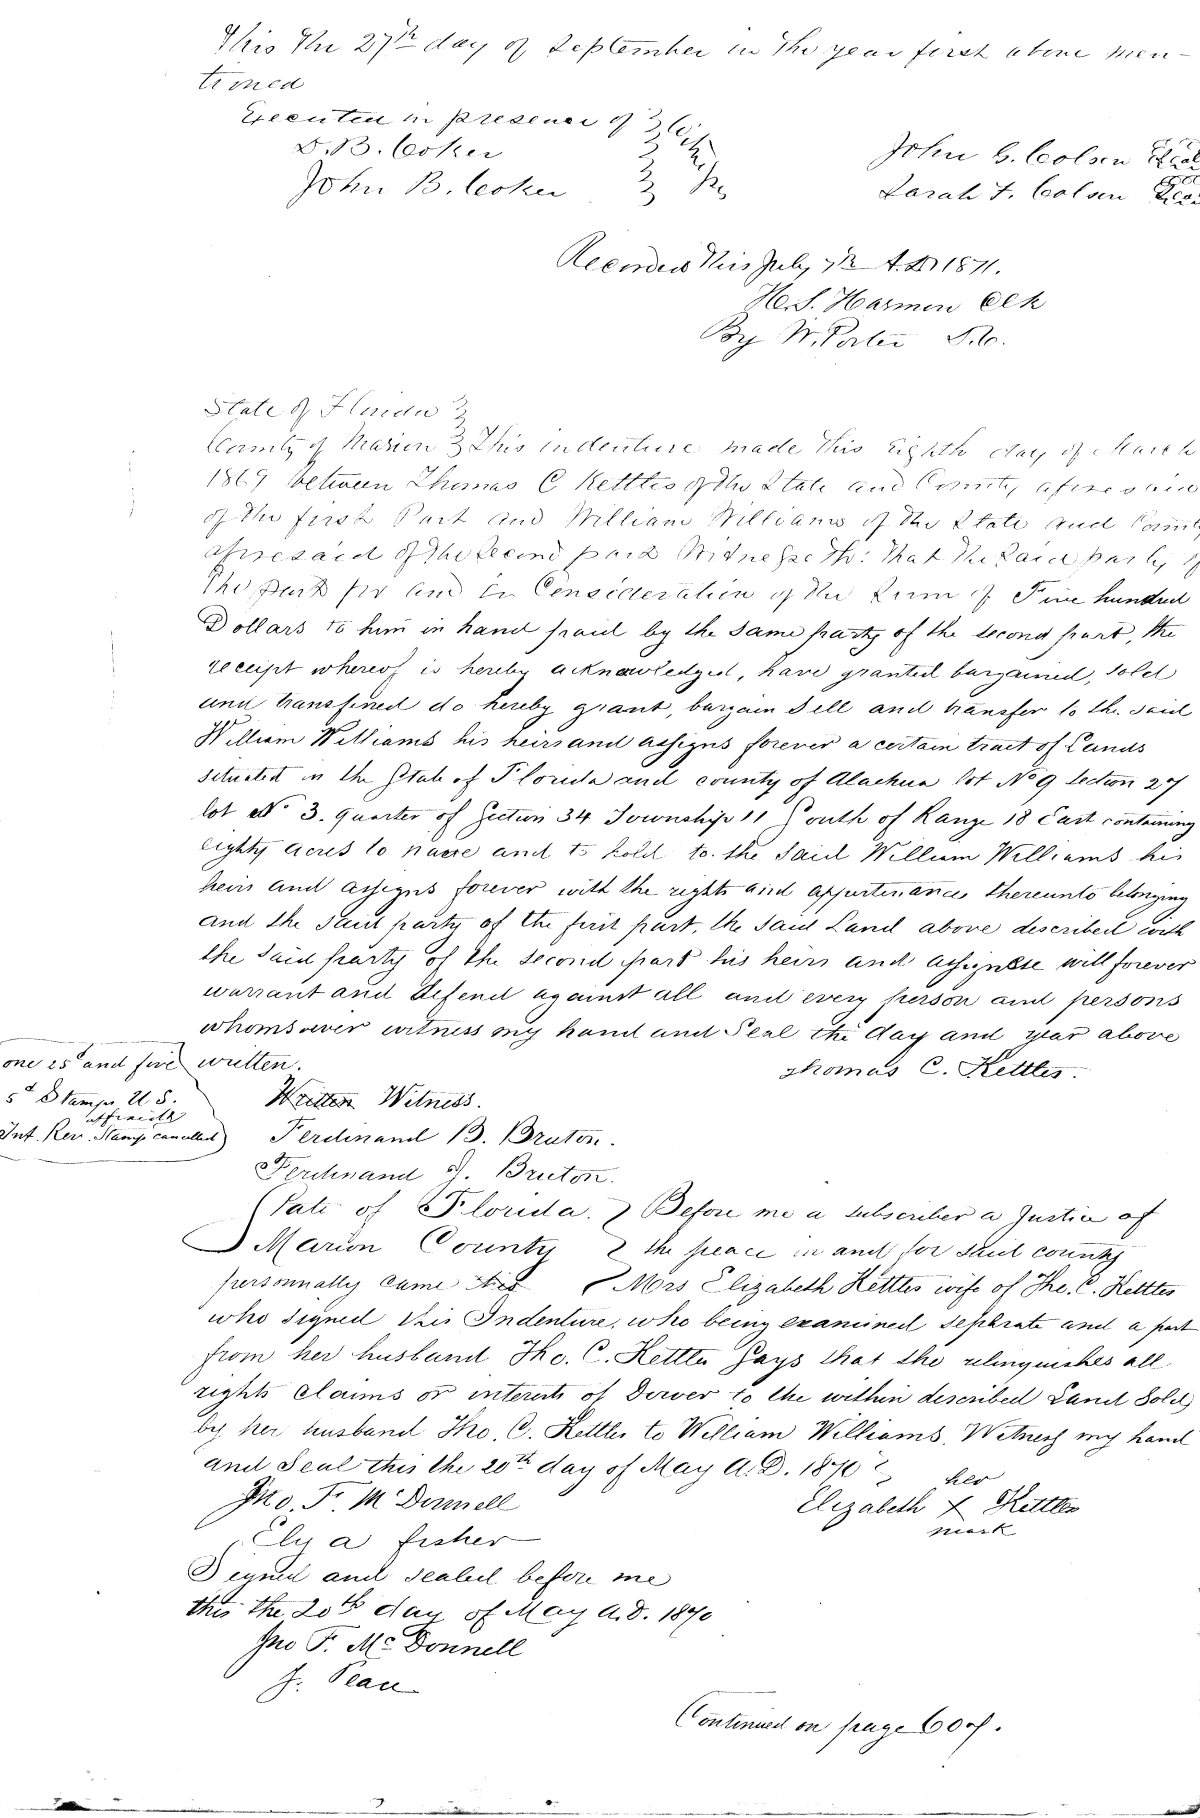 This the 27th day of September in the year first above men-
tioned
Executed in presence of
D. B. Coker
John B. Coker
John C. Colson Seal
Sarah F. Colson Seal
Recorded this July 7th A.D 1871.
H. S. Harmon Clk
By W. Porter D.C.
State of Florida
County of Marion This indenture made this Eighth day of March
1869 between Thomas C Kettles of the State and County aforesaid
of the first Part and William Williams of the State and County
aforesaid of the Second part Witnesseth: That the Said party of
the part for and in Consideration of the Sum of Five hundred
Dollars to him in hand paid by the same party of the second part, the
receipt whereof is hereby acknowledged, have granted bargained, sold
and transfered do hereby grant, bargain Sell and transfer to the said
William Williams his heirs and assigns forever a certain tract of Lands
situated in the State of Florida and county of Alachua lot No 9 Section 27
lot No 3. quarter of Section 34 Township 11 South of Range 18 East containing
eighty acres to have and to hold to the Said William Williams his
heirs and assigns forever with the rights and appurtenances thereunto belonging
and the Said party of the first part, the Said Land above described with
the Said party of the second part his heirs and assignese will forever
warrant and defend against all and every person and persons
whomsoever witness my hand and Seal the day and year above
written.
Thomas C. Kettles.
one 25 and five
5ct Stamps U S.
affixed &
Int. Rev. Stamp cancelled
Written Witness.
Ferdinand B. Bruton.
Ferdinand J. Bruton.
State of Florida. Before me a subscriber a Justice of
Marion County the peace in and for said county
personnally came Mrs Elizabeth Kettles wife of Tho. C. Kettles
who signed this Indenture, who being examined sephrate and a part
from her husband Tho. C. Kettles Says that she relinquishes all
rights claims or interests of Dower to the within described Land Sold
by her husband Tho. C. Kettles to William Williams. Witness my hand
and Seal this the 20th day of May A.D. 1870
her
Jno. F. McDonnell
Elizabeth X Kettles
mark
Ely a fisher
Signed and sealed before me
this the 20th day of May A.D. 1870
Jno F. McDonnell
J. Peace
Continued on page 607.